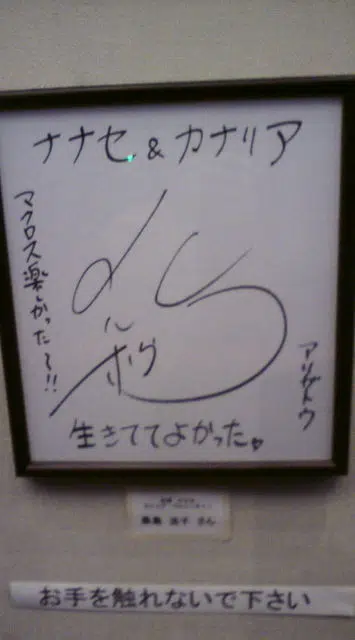 ナナセ&カナリア
マクロス楽しかった〜!!
アリガトウ
生きててよかった。
桑島 法子 さん
お手を触れないで下さい